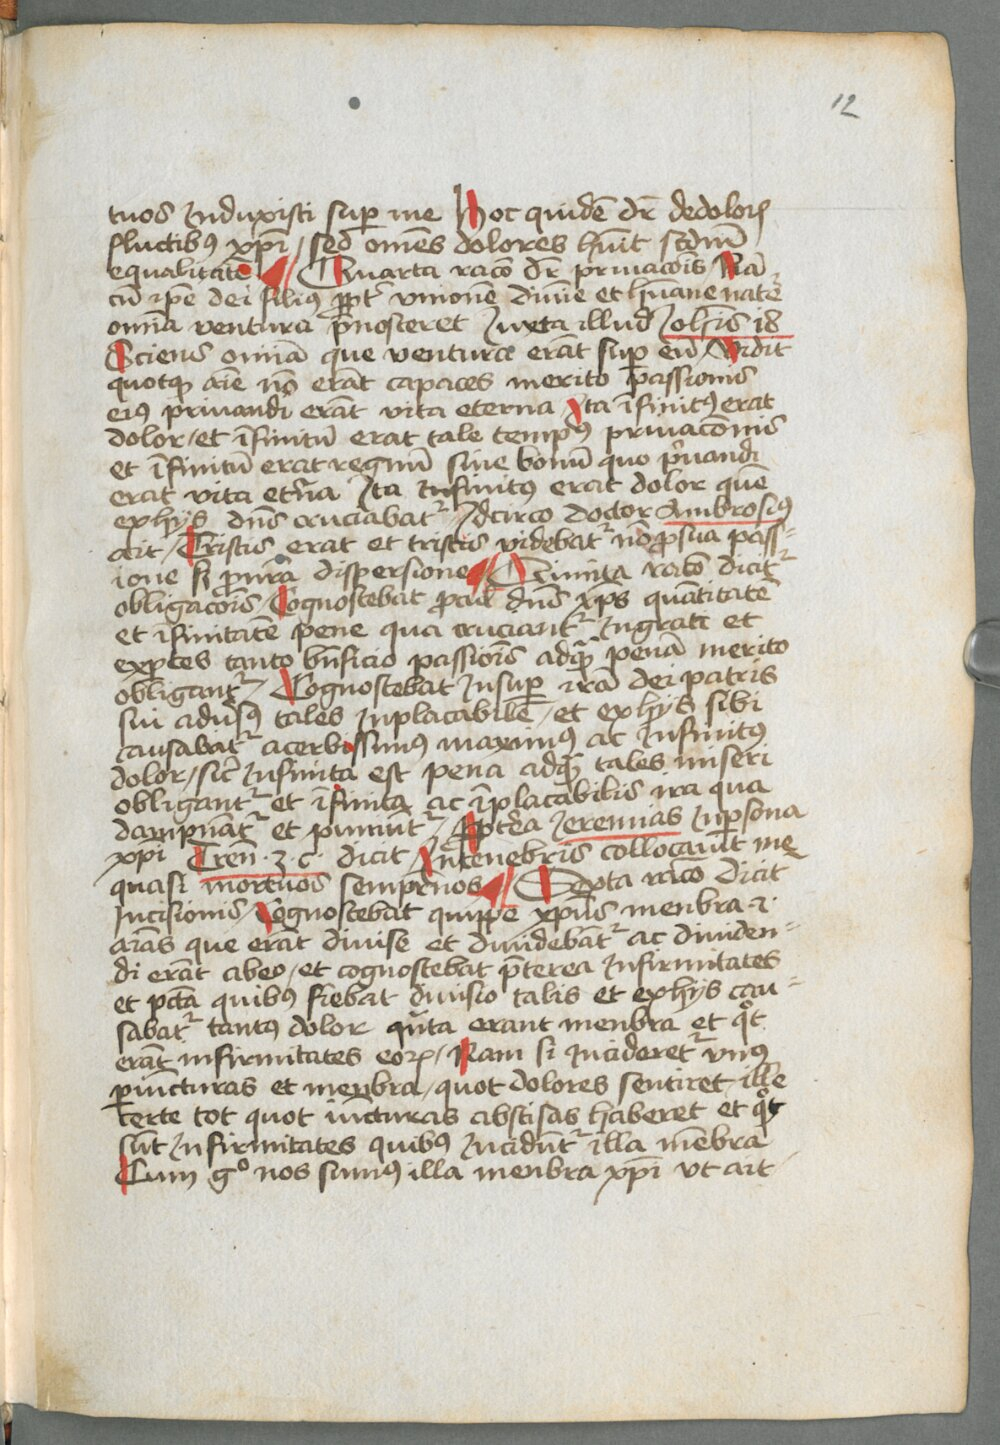 12
tuos Induxisti sup me Hoc quidē dr̄ de dolorꝫ
fluctibꝯ xp̄i / sed om̄es dolores hn̄it scdm̄
equalitatē ¶ Quarta racō dr̄ priuacōis Nā
cū ip̄e dei filiꝯ ꝓpt᷑ vnionē diuīe et hūane nat᷑e
om̄ia ventura p̄nosceret Iuxta illud Joh̄is 18
Sciens om̄ia que ventura erāt sup eū Vidit
quotqꝫ aīe nō erāt capaces merito passionis
eiꝯ priuandi erāt vita eterna / Ita īfinitꝯ erat
dolor / et īfinitū erat tale tempꝯ priuacōnis
et īfinitū erat regnū siue bonū quo p̄uandi
erāt vita et̄na Ita Infinitꝯ erat dolor quē
ex hijs dn̄s cruciabat᷑ / Idcirco doctor Ambrosiꝯ
ait / Tristis erat et tristis videbat᷑ nō ꝓ sua pass=
ione sꝫ ꝓ nr̄a dispersione ¶ Quinta racō dicit᷑
obligacōis / Cognoscebat dn̄s xp̄s quātitatē
et īfinitatē pene qua cruciant᷑ Ingrati et
exptes tanto bn̄ficio passiōis ad quā penā merito
obligant᷑ / Cognoscebat Insup irā dei patris
sui adūsꝯ tales Inplacabilē / et ex hijs sibi
causabat᷑ acerbissimꝯ maximꝯ ac Infinitꝯ
dolor / sic̄ Infinita est pena ad quā tales miseri
obligant᷑ et īfinita ac īplacabilis ira qua
dampnāt᷑ et puniūt᷑ / Ppt̄ea Jeremias In persona
xp̄i Tren̄ · 3 · c · dicit / In tenebris collocauit me
quasi mortuos semp̄nos ¶ Sexta racō dicit
Incisionis / Cognoscebat quippe xp̄us menbra ·i·
aīas que erāt diuise et diuidebāt᷑ ac diuiden=
di erāt ab eo / et cognoscebat p̄terea Infirmitates
et pctā quibꝯ fiebat diuisio talis et ex hijs cau=
sabat᷑ tantꝯ dolor qūta erant menbra et qͦt
erāt infirmitates eorꝫ / Nam si Incideret᷑ vnꝯ
p iuncturas et menbra / quot dolores sentiret ille
certe tot quot iūcturas abscisas haberet et qͦt
sūt Infirmitates quibꝯ Incidūt᷑ illa mēbra
Cum gͦ nos sumꝯ illa menbra xp̄i vt ait